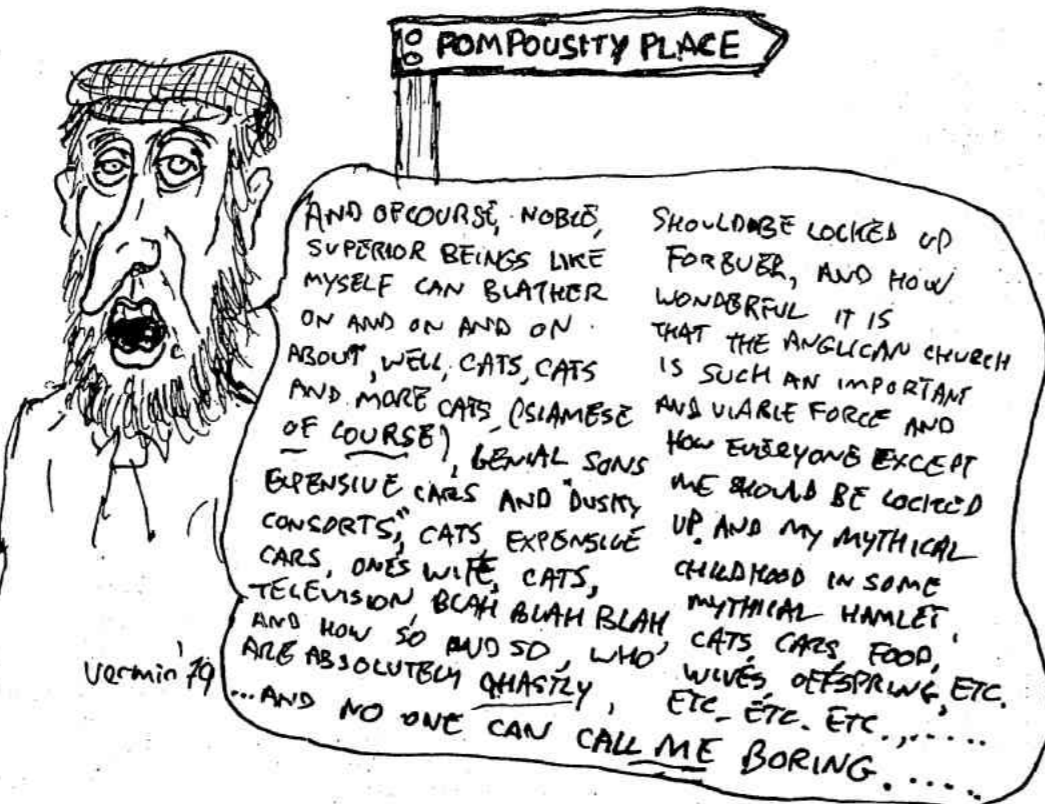 POMPOUSITY PLACE
AND OF COURSE, NOBLE,
SUPERIOR BEINGS LIKE
MYSELF CAN BLATHER
ON AND ON AND ON
ABOUT, WELL, CATS, CATS
AND MORE CATS (SIAMESE
OF COURSE), GENIAL SONS
EXPENSIVE CARS AND "DUSKY
CONSORTS," CATS, EXPENSIVE
CARS, ONES WIFE, CATS,
TELEVISION, BLAH BLAH BLAH
AND HOW SO AND SO, WHO
ARE ABSOLUTELY GHASTLY,
SHOULD BE LOCKED UP
FOREVER, AND HOW
WONDERFUL IT IS
THAT THE ANGLICAN CHURCH
IS SUCH AN IMPORTANT
AND VIABLE FORCE AND
HOW EVERYONE EXCEPT
ME SHOULD BE LOCKED
UP. AND MY MYTHICAL
CHILDHOOD IN SOME
MYTHICAL HAMLET,
CATS, CARS, FOOD,
WIVES, OFFSPRING, ETC.
ETC. ETC. ETC.,.....
...AND NO ONE CAN CALL ME BORING.....
Vermin '79